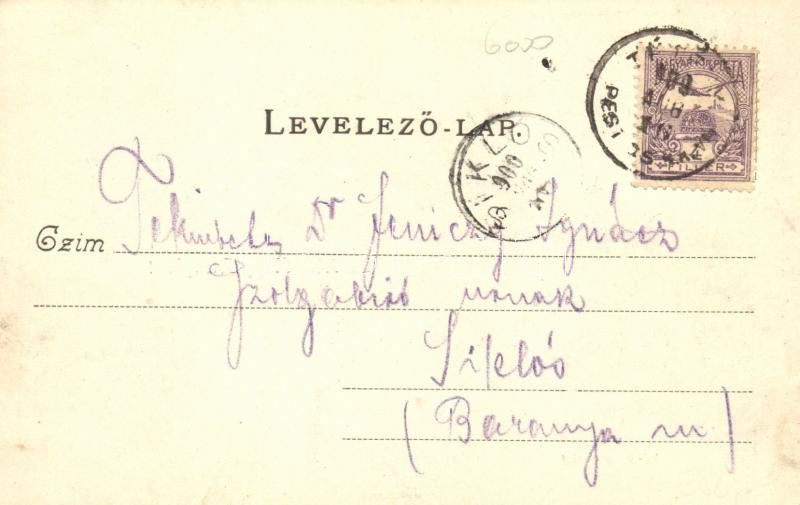 6000
MAGYAR KIR. POSTA
FILLÉR
LEVELEZŐ-LAP.
SIKLÓS
900
Czim Tekintetes Dr Jeniczy Ignácz
Szolgabiró urnak
Siklós
(Baranya m)